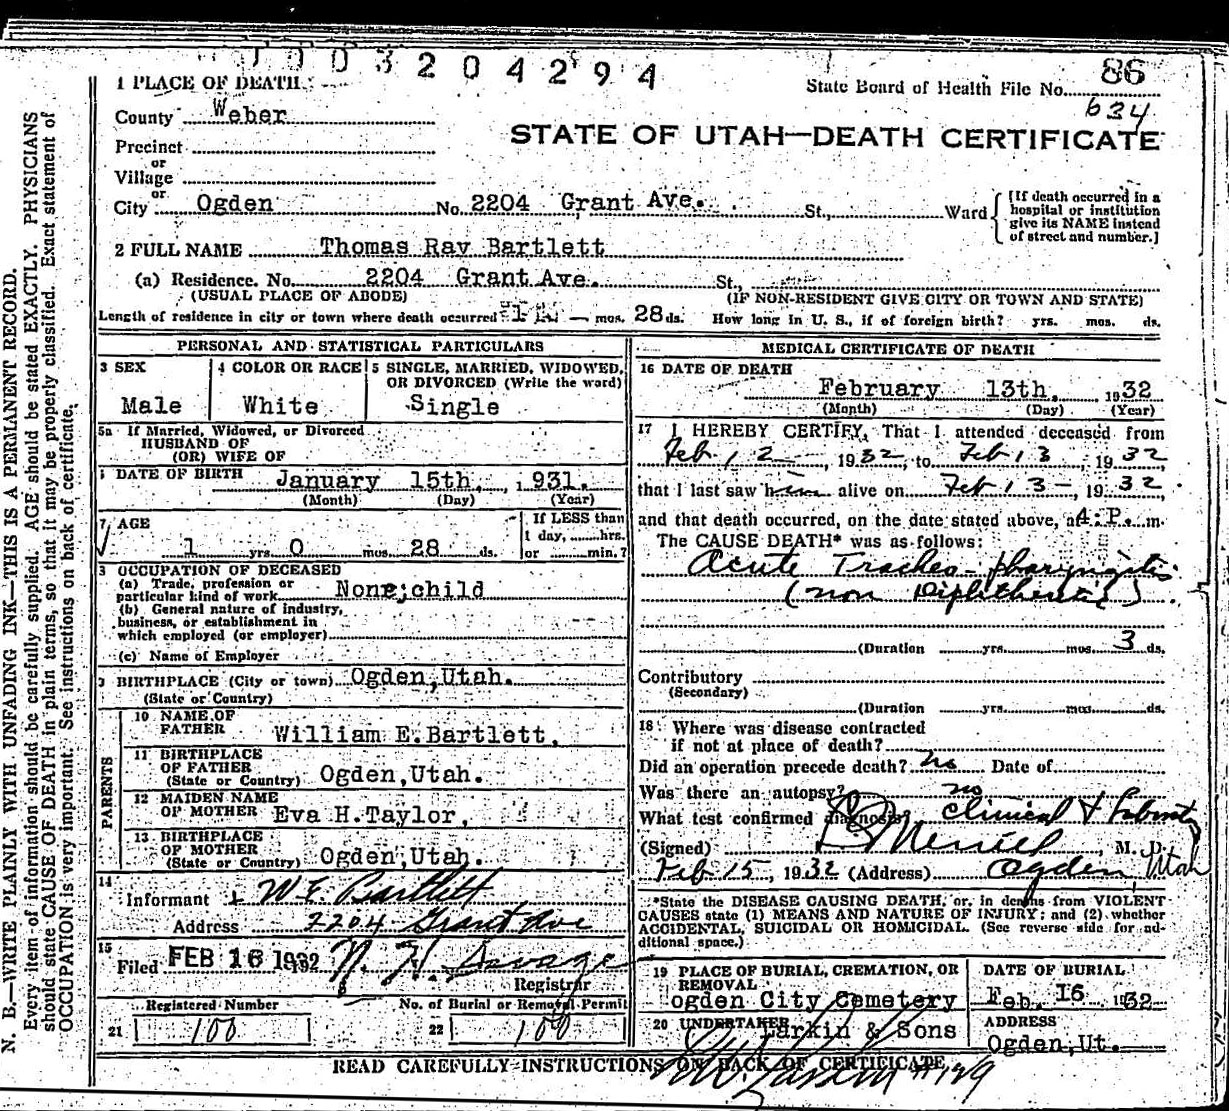 0003204294
86
1 PLACE OF DEATH
State Board of Health File No.
634
County Weber
STATE OF UTAH—DEATH CERTIFICATE
Precinct
or
Village
or
City Ogden No. 2204 Grant Ave. St., Ward
[If death occurred in a hospital or institution give its NAME instead of street and number.]
2 FULL NAME Thomas Ray Bartlett
(a) Residence. No. 2204 Grant Ave. St.,
(USUAL PLACE OF ABODE) (IF NON-RESIDENT GIVE CITY OR TOWN AND STATE)
Length of residence in city or town where death occurred — mos. 28 ds. How long in U. S., if of foreign birth? yrs. mos. ds.
PERSONAL AND STATISTICAL PARTICULARS
3 SEX
Male
4 COLOR OR RACE
White
5 SINGLE, MARRIED, WIDOWED, OR DIVORCED (Write the word)
Single
5a If Married, Widowed, or Divorced
HUSBAND OF
(OR) WIFE OF
DATE OF BIRTH January 15th, 1931.
(Month) (Day) (Year)
7 AGE
1 yrs 0 mos. 28 ds.
If LESS than
1 day, hrs.
or min.?
OCCUPATION OF DECEASED
(a) Trade, profession or
particular kind of work None;child
(b) General nature of industry,
business, or establishment in
which employed (or employer)
(c) Name of Employer
BIRTHPLACE (City or town) Ogden,Utah.
(State or Country)
PARENTS
10 NAME OF
FATHER William E.Bartlett,
11 BIRTHPLACE
OF FATHER
(State or Country) Ogden,Utah.
12 MAIDEN NAME
OF MOTHER Eva H.Taylor,
13 BIRTHPLACE
OF MOTHER
(State or Country) Ogden,Utah.
14
Informant W E Bartlett
Address 2204 Grant Ave
15
Filed FEB 16 1932 N. H. Savage
Registrar
Registered Number
21 100
No. of Burial or Removal Permit
22 100
MEDICAL CERTIFICATE OF DEATH
16 DATE OF DEATH
February 13th. 1932
(Month) (Day) (Year)
17 I HEREBY CERTIFY, That I attended deceased from
Feb, 12 , 1932, to Feb 13 , 1932,
that I last saw him alive on Feb 13 -, 1932,
and that death occurred, on the date stated above, at 4:P. m.
The CAUSE DEATH* was as follows:
Acute Tracheo-pharyngitis
(non Diphtheretic)
(Duration yrs. mos. 3 ds.
Contributory
(Secondary)
(Duration yrs. mos. ds.
18 Where was disease contracted
if not at place of death?
Did an operation precede death? no Date of
Was there an autopsy? no
What test confirmed diagnosis? Clinical &
(Signed) Merrill, M. D.
Feb 15, 1932 (Address) Ogden, Utah
*State the DISEASE CAUSING DEATH, or, in deaths from VIOLENT
CAUSES state (1) MEANS AND NATURE OF INJURY; and (2) whether
ACCIDENTAL, SUICIDAL OR HOMICIDAL. (See reverse side for ad-
ditional space.)
19 PLACE OF BURIAL, CREMATION, OR
REMOVAL
ogden City Cemetery
DATE OF BURIAL
Feb. 16 1932
20 UNDERTAKER Larkin & Sons
ADDRESS
Ogden,Ut.
READ CAREFULLY INSTRUCTIONS ON BACK OF CERTIFICATE
N. B.—WRITE PLAINLY WITH UNFADING INK—THIS IS A PERMANENT RECORD.
Every item of information should be carefully supplied. AGE should be stated EXACTLY. PHYSICIANS
should state CAUSE OF DEATH in plain terms, so that it may be properly classified. Exact statement of
OCCUPATION is very important. See instructions on back of certificate.